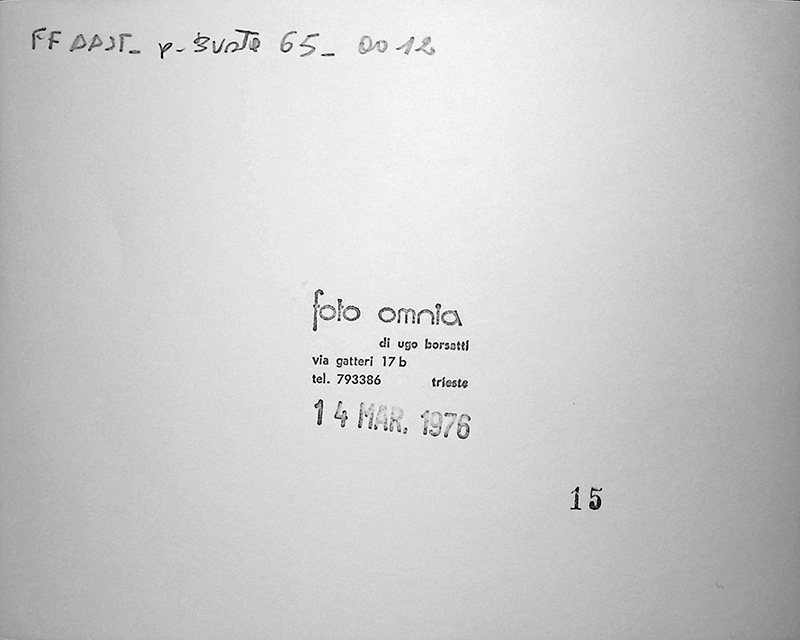 FF AAST_ p-Buste 65_ 0012
foto omnia
di ugo borsatti
via gatteri 17 b
tel. 793386 trieste
14 MAR. 1976
15